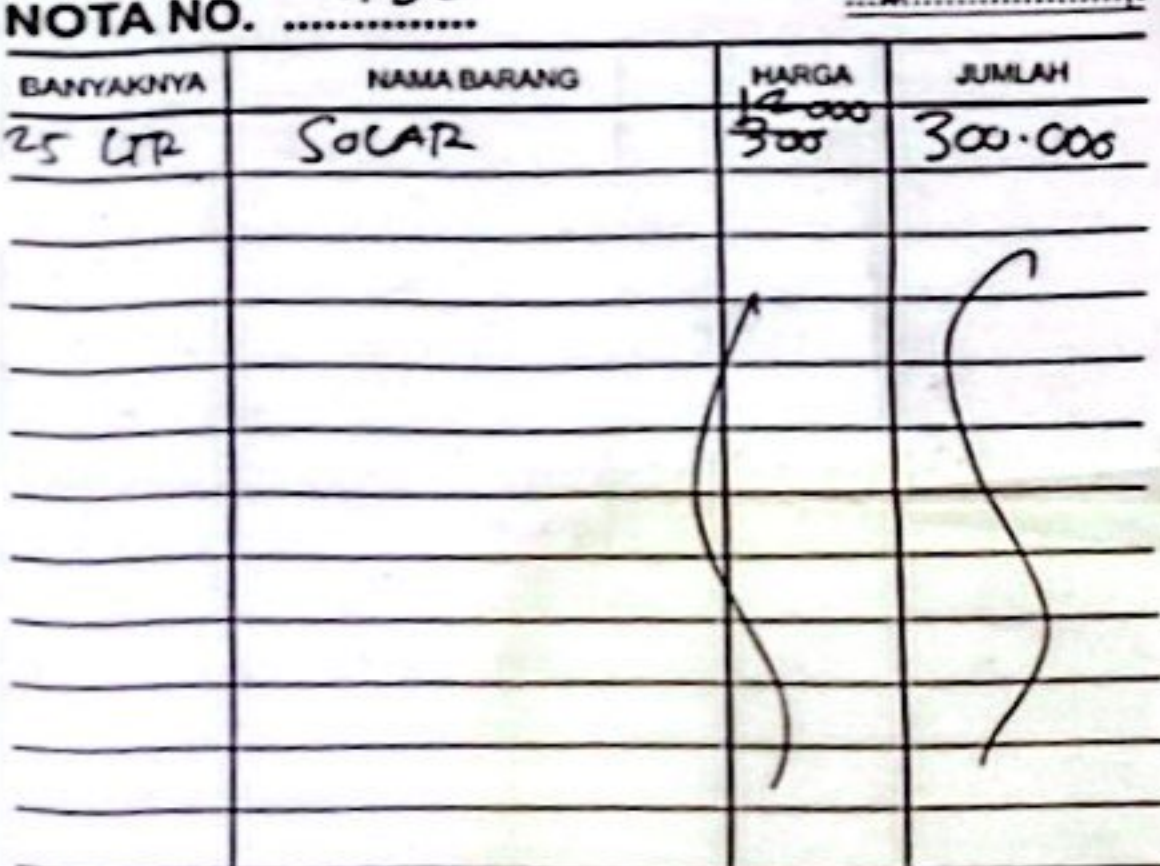 NOTA NO. ..............
BANYAKNYA NAMA BARANG HARGA JUMLAH
12000
25 LTR SOLAR 300 300.000